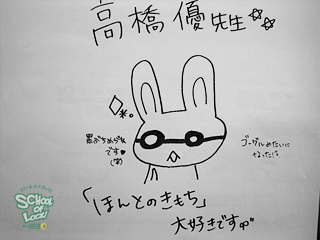 高橋優先生☆☆
黒ぶちめがね
です♥
(笑)
ゴーグルみたいに
なった!?
「ほんとのきもち」
大好きです
SCHOOL
OF
LOCK!